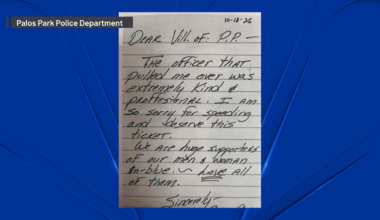 Palos Park Police Department
10-18-25
DEAR Vill. of P.P. —
THE officer THAT
pulled me over was
extremely Kind &
proffesional. I am
so sorry for speeding
and deserve this
ticket.
We are huge supporters
of our men & woman
in-blue, ~ Love all
of them.
Sincerely